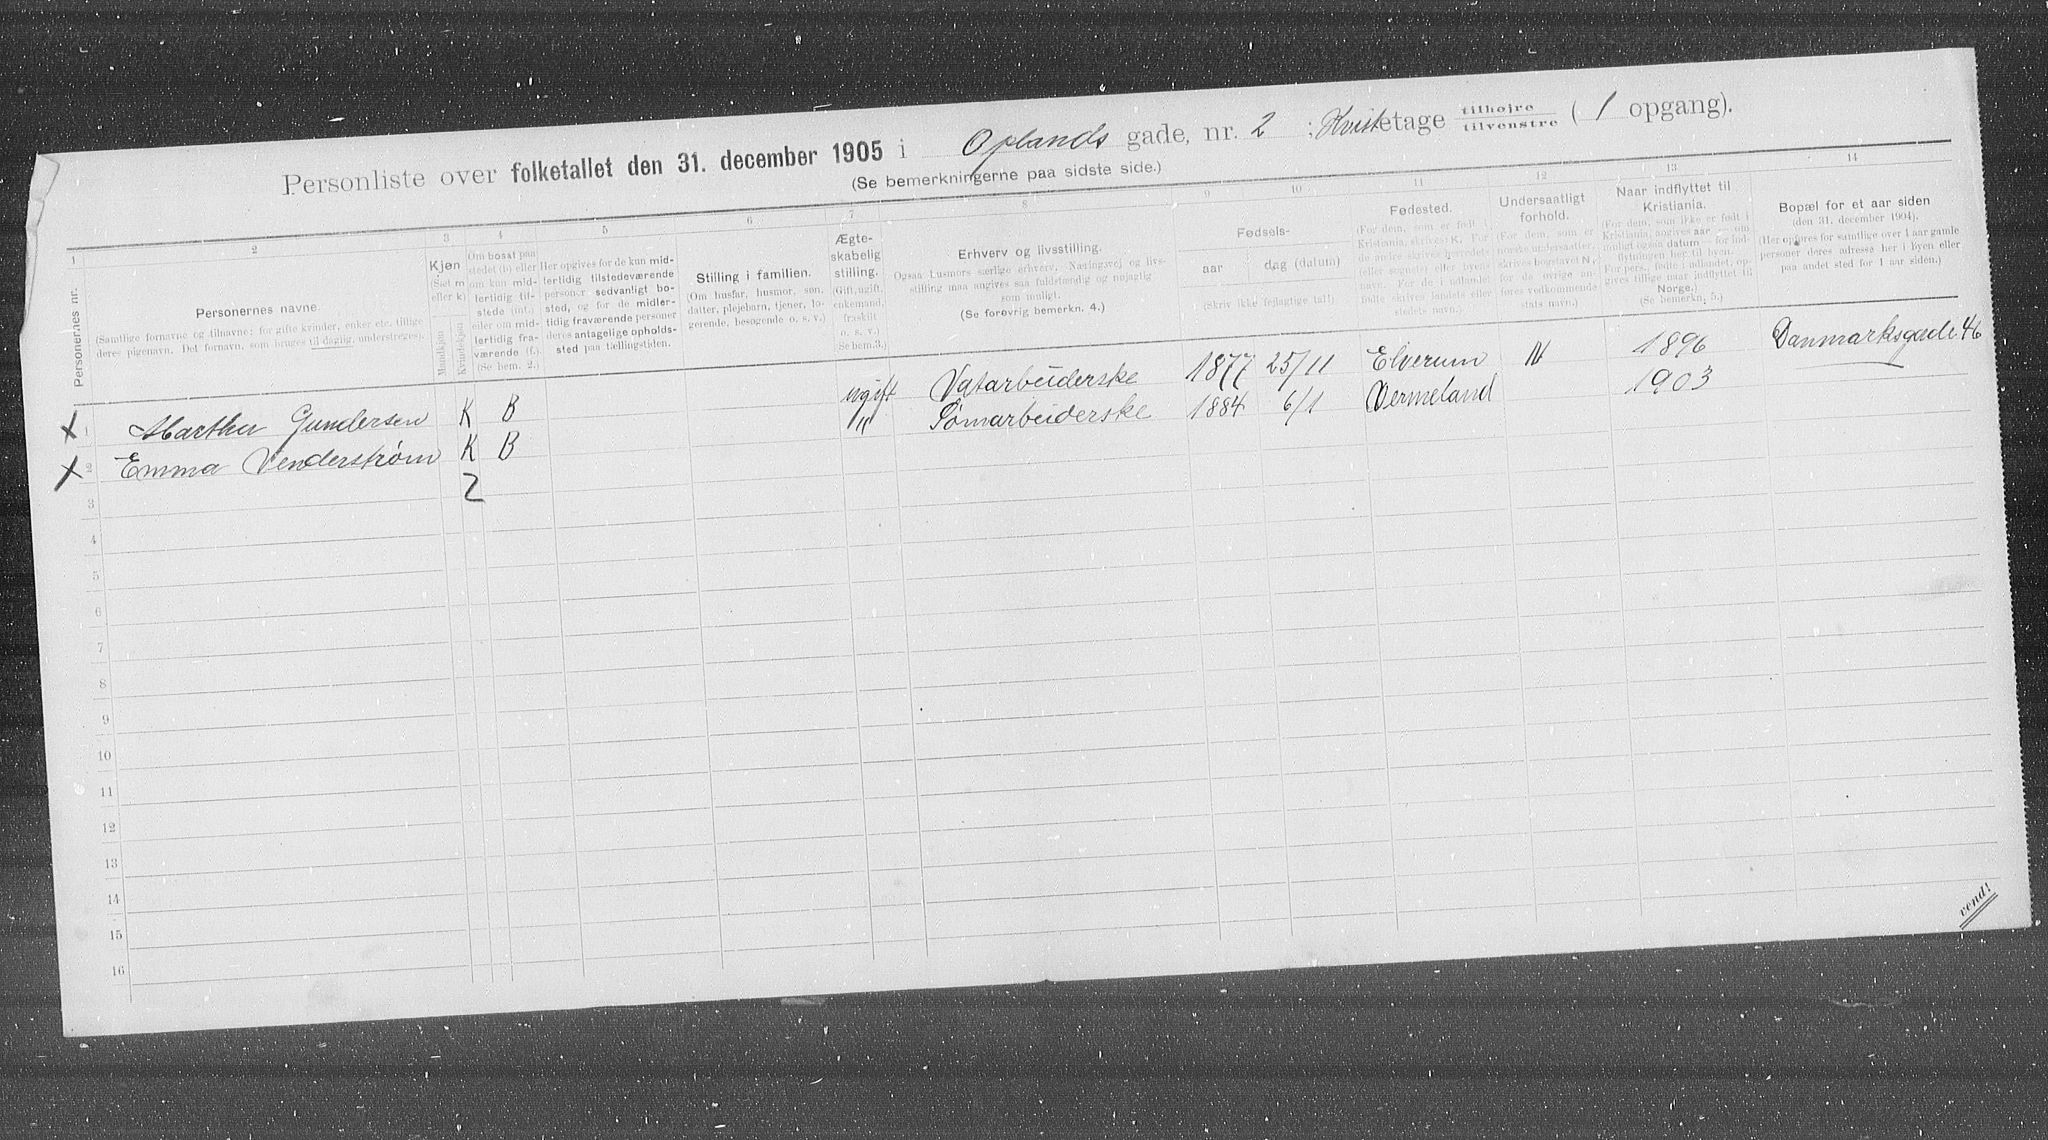 Personliste over folketallet den 31. december 1905 i Oplands gade, nr. 2 ; Kvistetage tilhøire tilvenstre ( 1 opgang).
(Se bemerkningerne paa sidste side.)
1 2 3 4 5 6 7 8 9 10 11 12 13 14
Personernes nr.
Personernes navne.
(Samtlige fornavne og tilnavne; for gifte kvinder, enker etc. tillige deres pigenavn. Det fornavn, som bruges til daglig, understreges).
Kjøn
(Sæt m eller k)
Mandkjøn Kvindekjøn
Om bosat paa stedet (b) eller om kun midlertidig tilstede (mt.) eller om midlertidig fraværende (f.)
(Se bem. 2.)
Her opgives for de kun midlertidig tilstedeværende personer sedvanligt bosted, og for de midlertidig fraværende personer deres antagelige opholdssted paa tællingstiden.
Stilling i familien.
(Om husfar, husmor, søn, datter, plejebarn, tjener, logerende, besøgende o. s. v.)
Ægteskabelig stilling.
(Gift, ugift, enkemand, fraskilt o. s. v.)
Se bem.3.)
Erhverv og livsstilling.
Ogsaa Husmors særlige erhverv. Næringsvej og livsstilling maa angives saa fuldstændig og nøjagtig som muligt.
(Se forøvrig bemerkn. 4.)
Fødsels-
aar dag (datum)
(Skriv ikke fejlagtige tal!)
Fødested.
(For dem, som er født i Kristiania, skrives: K. For de andre skrives herredets (eller sognets) eller byens navn. For de i udlandet fødte skrives landets eller stedets navn.)
Undersaatligt forhold.
(For dem, som er norske undersaatter, skrives bogstavet N, for de øvrige anføres vedkommende stats navn.)
Naar indflyttet til Kristiania.
(For dem, som ikke er født i Kristiania, angives aar — om muligt ogsaa datum — for indflytningen her til byen. For pers., fødte i udlandet, opgives tillige naar indflyttet til Norge.)
(Se bemerkn. 5.)
Bopæl for et aar siden
(den 31. december 1904).
(Her opføres for samtlige over 1 aar gamle personer deres adresse her i byen eller paa andet sted for 1 aar siden.)
X 1 Marthea Gundersen K B ugift Vatarbeiderske 1877 25/11 Elverum N 1896 Danmarksgade 46
X 2 Emma Venderstrøm K B " Sømarbeiderske 1884 6/1 Vermeland 1903
3 2
4
5
6
7
8
9
10
11
12
13
14
15
16
vend!